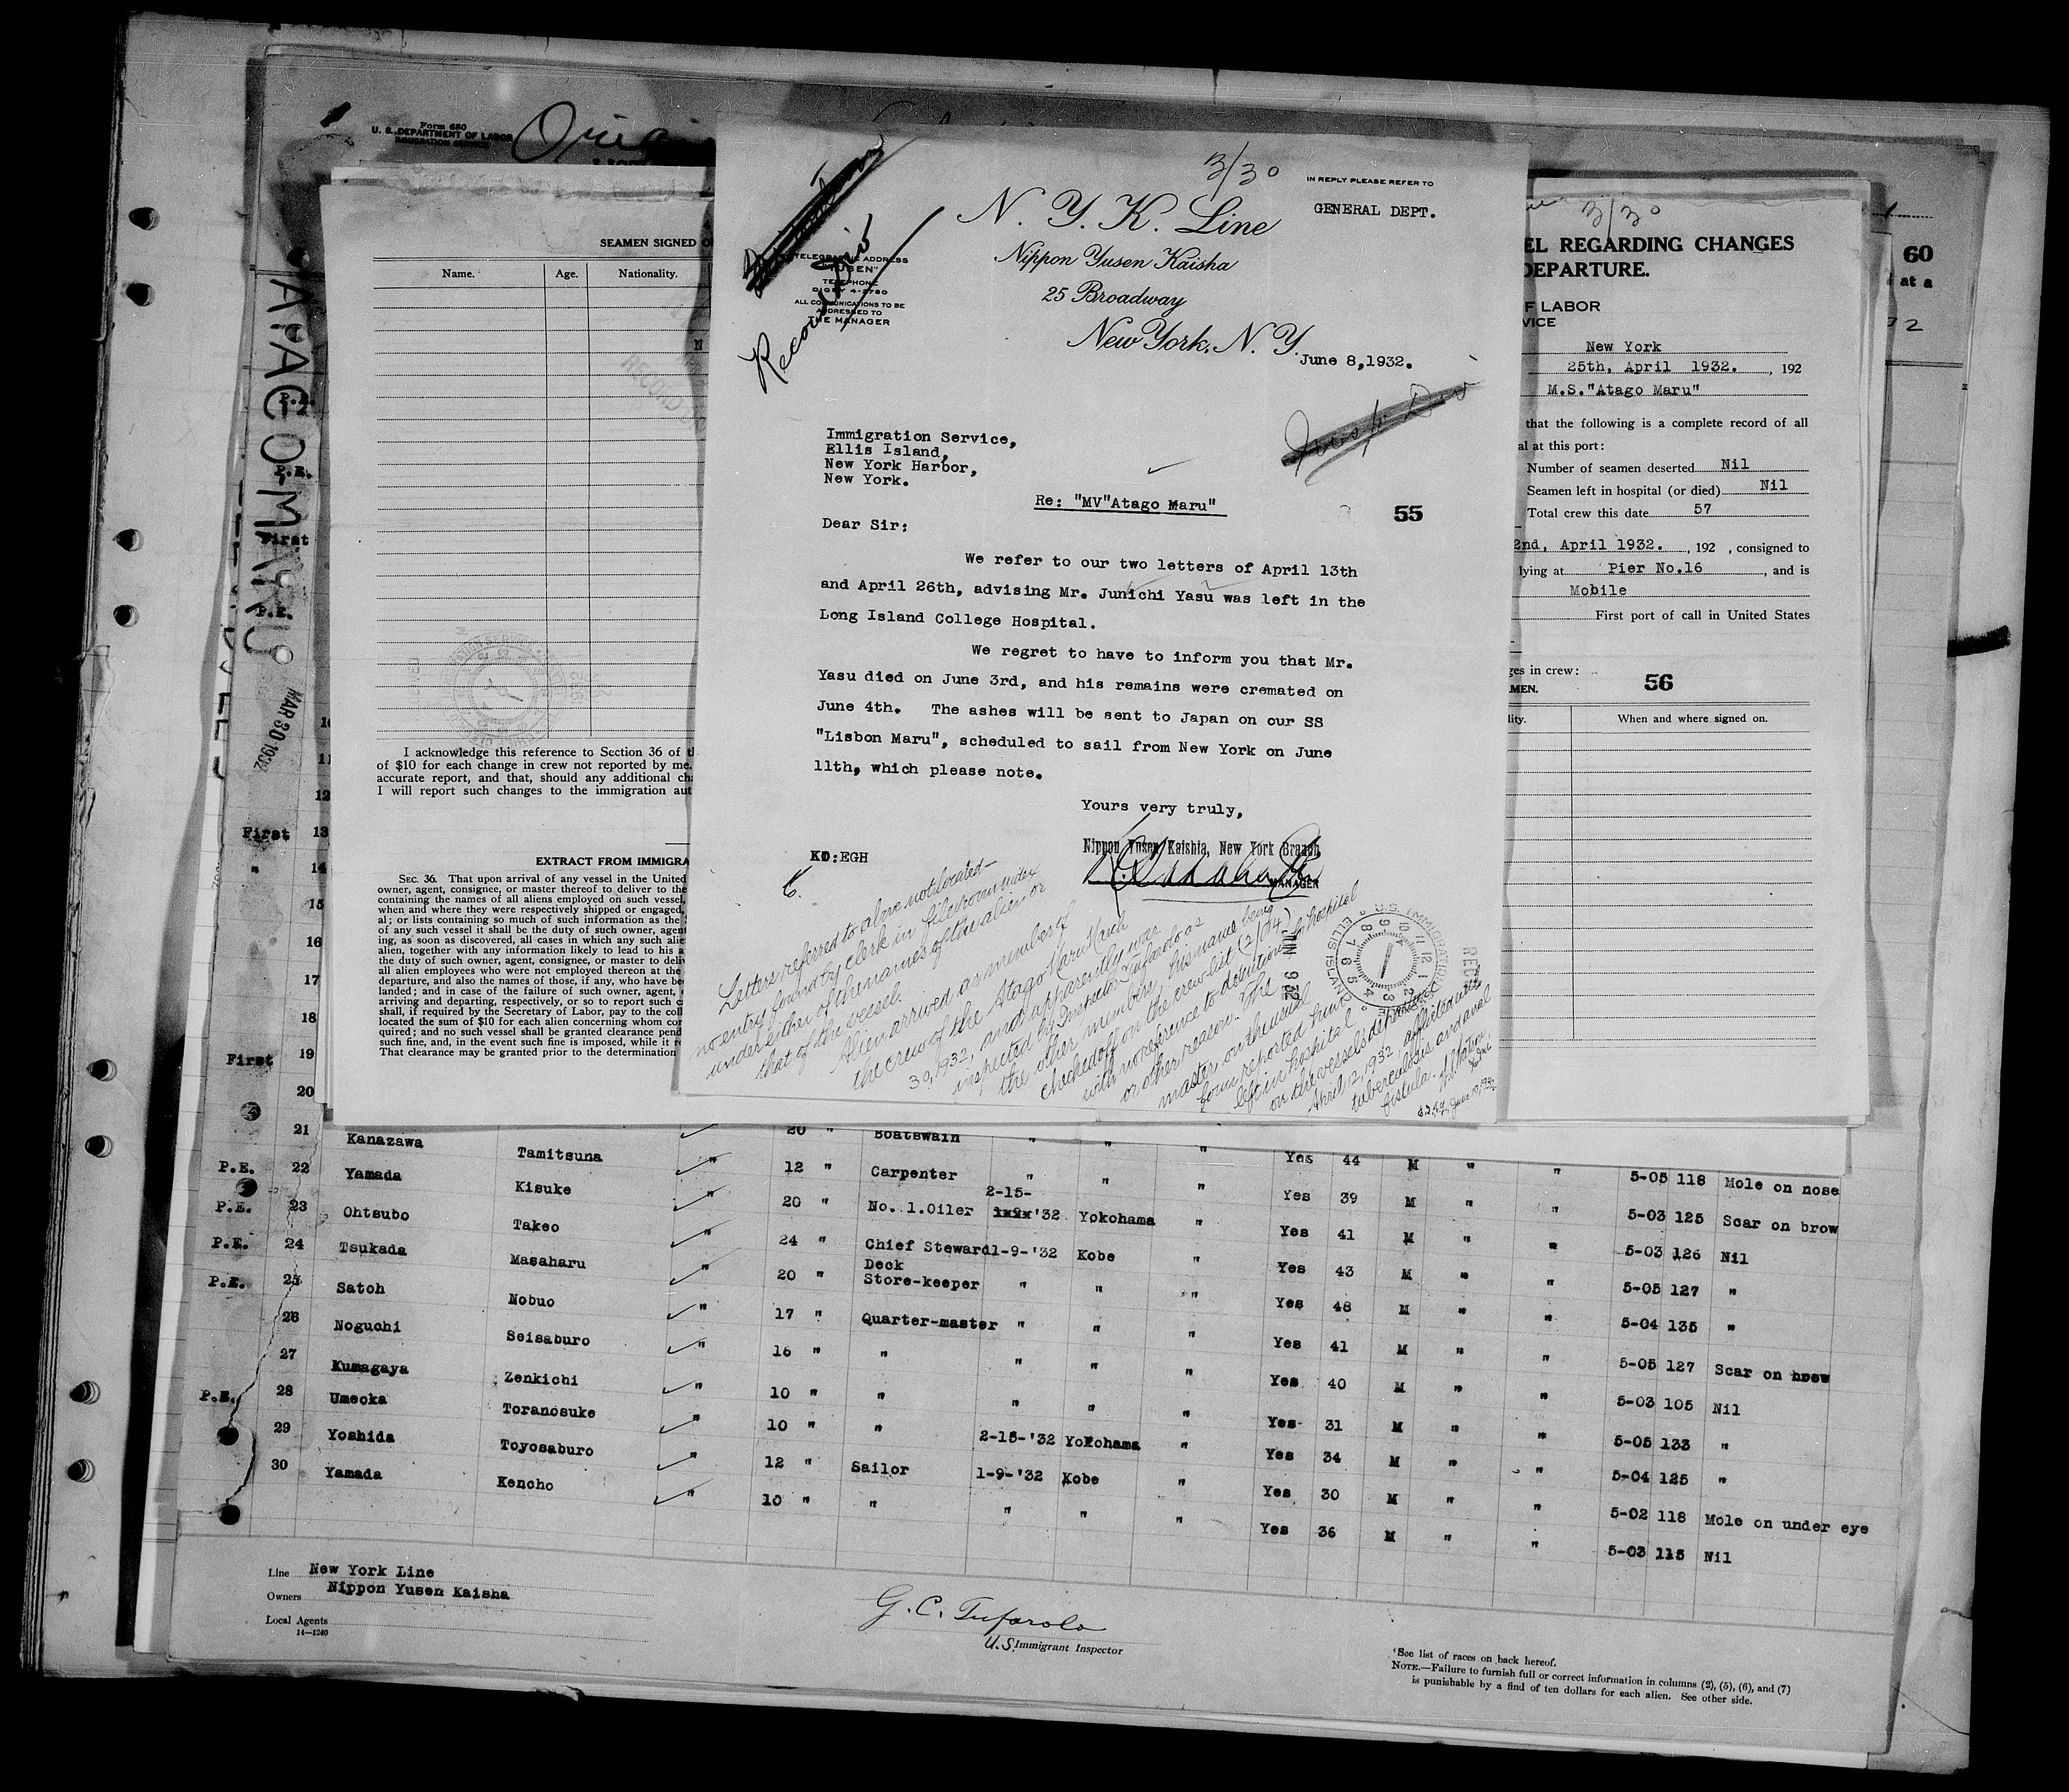 Form 680
U. S. DEPARTMENT OF LABOR
IMMIGRATION SERVICE
ATAGO MARU
MAR 30 1932
SEAMEN SIGNED O
Name. Age. Nationality.
I acknowledge this reference to Section 36 of t
of $10 for each change in crew not reported by me.
accurate report, and that, should any additional ch
I will report such changes to the immigration aut
EXTRACT FROM IMMIGRA
SEC. 36. That upon arrival of any vessel in the United
owner, agent, consignee, or master thereof to deliver to the
containing the names of all aliens employed on such vessel,
when and where they were respectively shipped or engaged,
al; or lists containing so much of such information as the
of any such vessel it shall be the duty of such owner, agent
ing, as soon as discovered, all cases in which any such alie
alien, together with any information likely to lead to his a
the duty of such owner, agent, consignee, or master to deliv
all alien employees who were not employed thereon at the
departure, and also the names of those, if any, who have be
landed; and in case of the failure of such owner, agent,
arriving and departing, respectively, or so to report such c
shall, if required by the Secretary of Labor, pay to the coll
located the sum of $10 for each alien concerning whom cor
quired; and no such vessel shall be granted clearance pend
such fine, and, in the event such fine is imposed, while it r
That clearance may be granted prior to the determination
3/30
IN REPLY PLEASE REFER TO
GENERAL DEPT.
N. Y. K. Line
Nippon Yusen Kaisha
25 Broadway
New York, N. Y.
June 8,1932.
TELEGRAPHIC ADDRESS
"YUSEN"
TELEPHONE
DIGBY 4-2780
ALL COMMUNICATIONS TO BE
ADDRESSED TO
THE MANAGER
Record Div
Immigration Service,
Ellis Island,
New York Harbor,
New York.
Re: "MV"Atago Maru"
55
Dear Sir:
We refer to our two letters of April 13th
and April 26th, advising Mr. Junichi Yasu was left in the
Long Island College Hospital.
We regret to have to inform you that Mr.
Yasu died on June 3rd, and his remains were cremated on
June 4th. The ashes will be sent to Japan on our SS
"Lisbon Maru", scheduled to sail from New York on June
11th, which please note.
Yours very truly,
Nippon Yusen Kaisha, New York Branch
MANAGER
KD:EGH
Letters referred to above not located—
no entry found by clerk in file room index
under either of the names of the alien or
that of the vessel.
Alien arrived as member of
the crew of the Atago Maru March
30, 1932, and apparently was
inspected by Inspector Tufarolo as
the other members, his name being
checked off on the crew list (2/04)
with no reference to detention in hospital
or other reason. The
master on the usual
form reported him
left in hospital
on the vessels departure
April 12, 1932 afflicted with
tuberculosis and anal
fistula.
June 10, 1932
U.S. IMMIGRATION
ELLIS ISLAND
JUN 9 32
3/30
EL REGARDING CHANGES
DEPARTURE.
F LABOR
VICE
New York
25th, April 1932. , 192
M.S."Atago Maru"
that the following is a complete record of all
al at this port:
Number of seamen deserted Nil
Seamen left in hospital (or died) Nil
Total crew this date 57
2nd, April 1932. , 192 , consigned to
lying at Pier No.16 , and is
Mobile
First port of call in United States
ges in crew:
MEN.
56
lity. When and where signed on.
60
at a
P.E.
P.E.
First
P.E.
10
11
12
First 13
" 14
15
16
17
18
First 19
20
21 Kanazawa Tamitsuna " 20 " Boatswain " " " Yes 44 M " " 5-05 118 Mole on nose
P.E. 22 Yamada Kisuke " 12 " Carpenter " " " Yes 39 M " " 5-03 125 Scar on brow
P.E. 23 Ohtsubo Takeo " 20 " No. 1.Oiler 2-15-'32 Yokohama " Yes 41 M " " 5-03 126 Nil
P.E. 24 Tsukada Masaharu " 24 " Chief Steward 1-9-'32 Kobe " Yes 43 M " " 5-05 127 "
P.E. 25 Satoh Nobuo " 20 " Deck Store-keeper " " " Yes 48 M " " 5-04 135 "
26 Noguchi Seisaburo " 17 " Quarter-master " " " Yes 41 M " " 5-05 127 Scar on brow
27 Kumagaya Zenkichi " 16 " " " " " Yes 40 M " " 5-03 105 Nil
P.E. 28 Umeoka Toranosuke " 10 " " " " " Yes 31 M " " 5-05 133 "
29 Yoshida Toyosaburo " 10 " " 2-15-'32 Yokohama " Yes 34 M " " 5-04 125 "
30 Yamada Kencho " 12 " Sailor 1-9-'32 Kobe " Yes 30 M " " 5-02 118 Mole on under eye
" 10 " " " " " Yes 36 M " " 5-03 115 Nil
Line New York Line
Owners Nippon Yusen Kaisha
Local Agents
14—1240
G. C. Tufarolo
U.S. Immigrant Inspector
See list of races on back hereof.
NOTE.—Failure to furnish full or correct information in columns (2), (5), (6), and (7)
is punishable by a find of ten dollars for each alien. See other side.